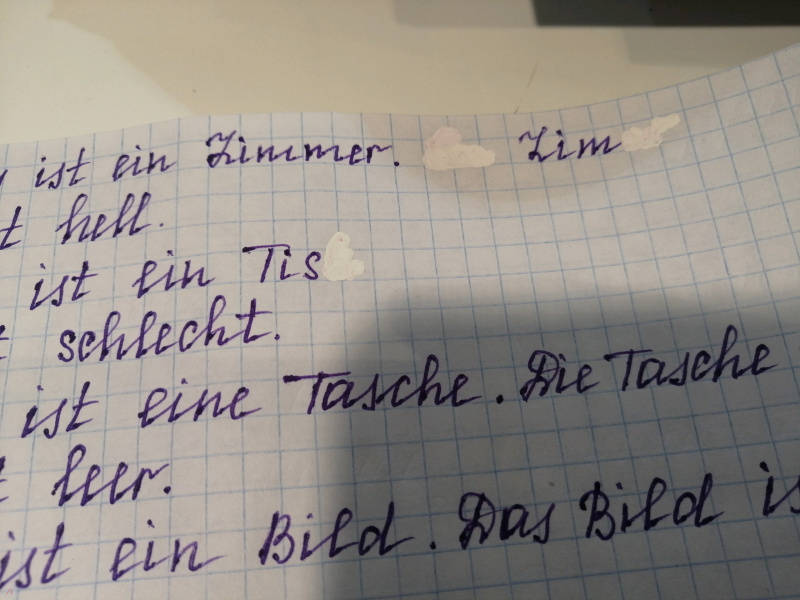 ist ein Zimmer. Zim
t hell.
ist ein Tis
t schlecht.
ist eine Tasche. Die Tasche
t leer.
ist ein Bild. Das Bild is